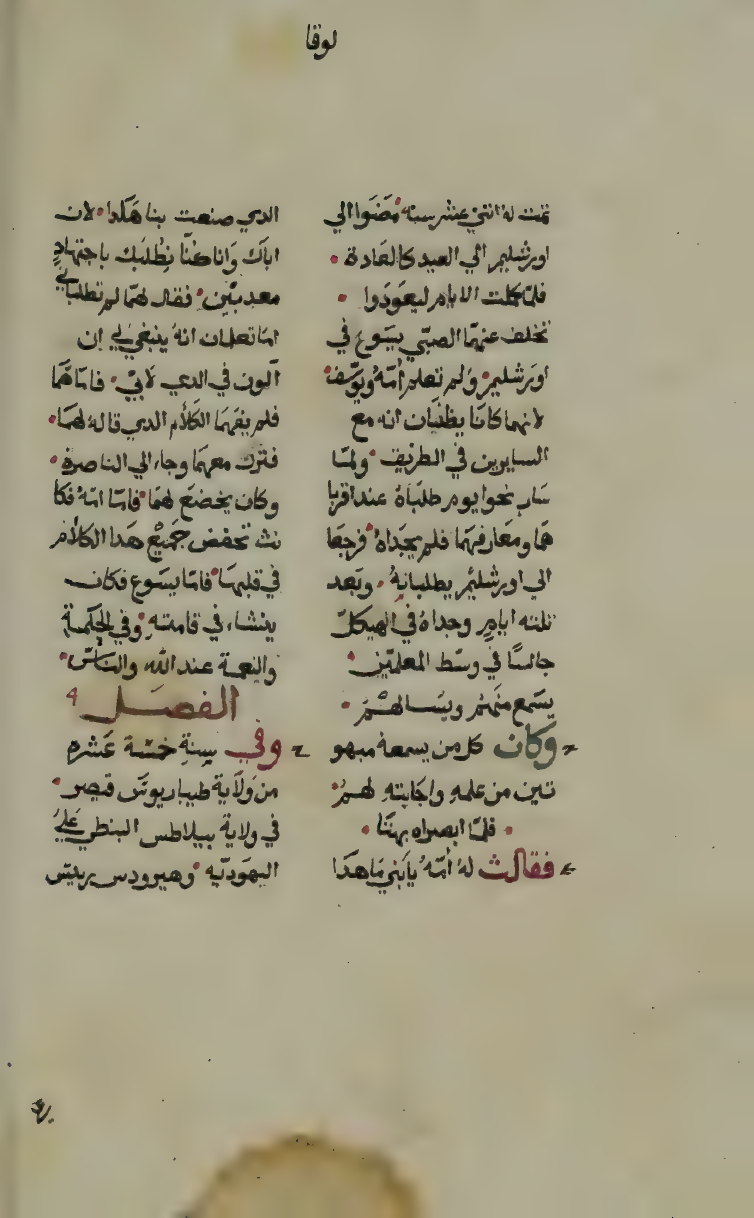 لوقا
تمت له اثني عشر سنه مضوا الي
اورشليم الي العيد كالعادة
فلما كملت الايام ليعودوا
تخلف عنهما الصبي يسوع في
اورشليم ولم تعلم امه ويوسف
لانهما كانا يظنان انه مع
السايرين في الطريق ولما
سار نحوا يوم طلباه عند اقربا
هما ومعارفهما فلم يجداه فرجعا
الي اورشليم يطلبانه وبعد
ثلثه ايام وجداه في الهيكل
جالسا في وسط المعلمين
يسمع منهم ويسالهم
وكان كل من يسمعه مبهو
تين من علمه واجابته لهم
فلما ابصراه بهتا
فقالت له امه يابني ما هدا
الدي صنعت بنا هكدا لان
اباك وانا كنا نطلبك باجتهاد
معدبين فقال لهما لم تطلباني
اما تعلمان انه ينبغي لي ان
اكون في الدي لابي فاما هما
فلم يفهما الكلام الدي قاله لهما
فنزل معهما وجاء الي الناصرة
وكان يخضع لهما فاما امه فكا
نت تحفض جميع هدا الكلام
في قلبها فاما يسوع فكان
ينشاء في قامته وفي الحكمة
والنعمة عند الله والناس
الفصل
وفي سنة خمسة عشره
من ولاية طيباريوس قيصر
في ولاية بيلاطس البنطي علي
اليهودية وهيرودس رييس